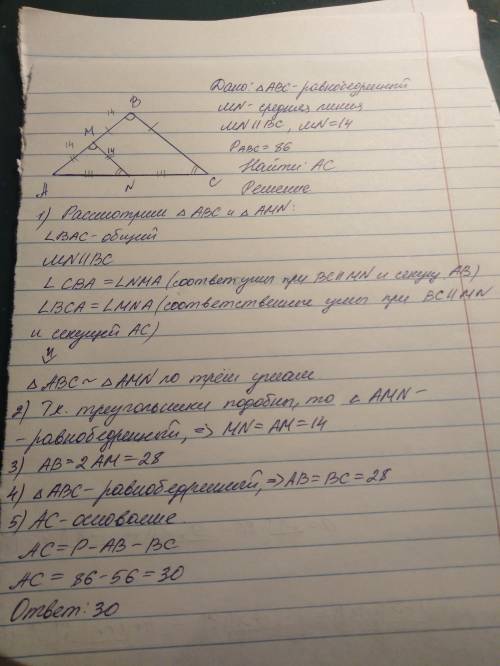 Дано: △ABC - равнобедренный
MN - средняя линия
MN || BC, MN = 14
P ABC = 86
Найти: AC
Решение
B
14
M
14
14
A
N
C
1) Рассмотрим △ ABC и △ AMN:
∠BAC - общий
MN || BC
∠ CBA = ∠NMA (соответ углы при BC || MN и секущ AB)
∠BCA = ∠MNA (соответственные углы при BC || MN
и секущей AC)
△ ABC ~ △ AMN по трём углам
2) Т.к. треугольники подобны, то △ AMN -
- равнобедренный, => MN = AM = 14
3) AB = 2 AM = 28
4) △ ABC - равнобедренный, => AB = BC = 28
5) AC - основание
AC = P - AB - BC
AC = 86 - 56 = 30
Ответ: 30